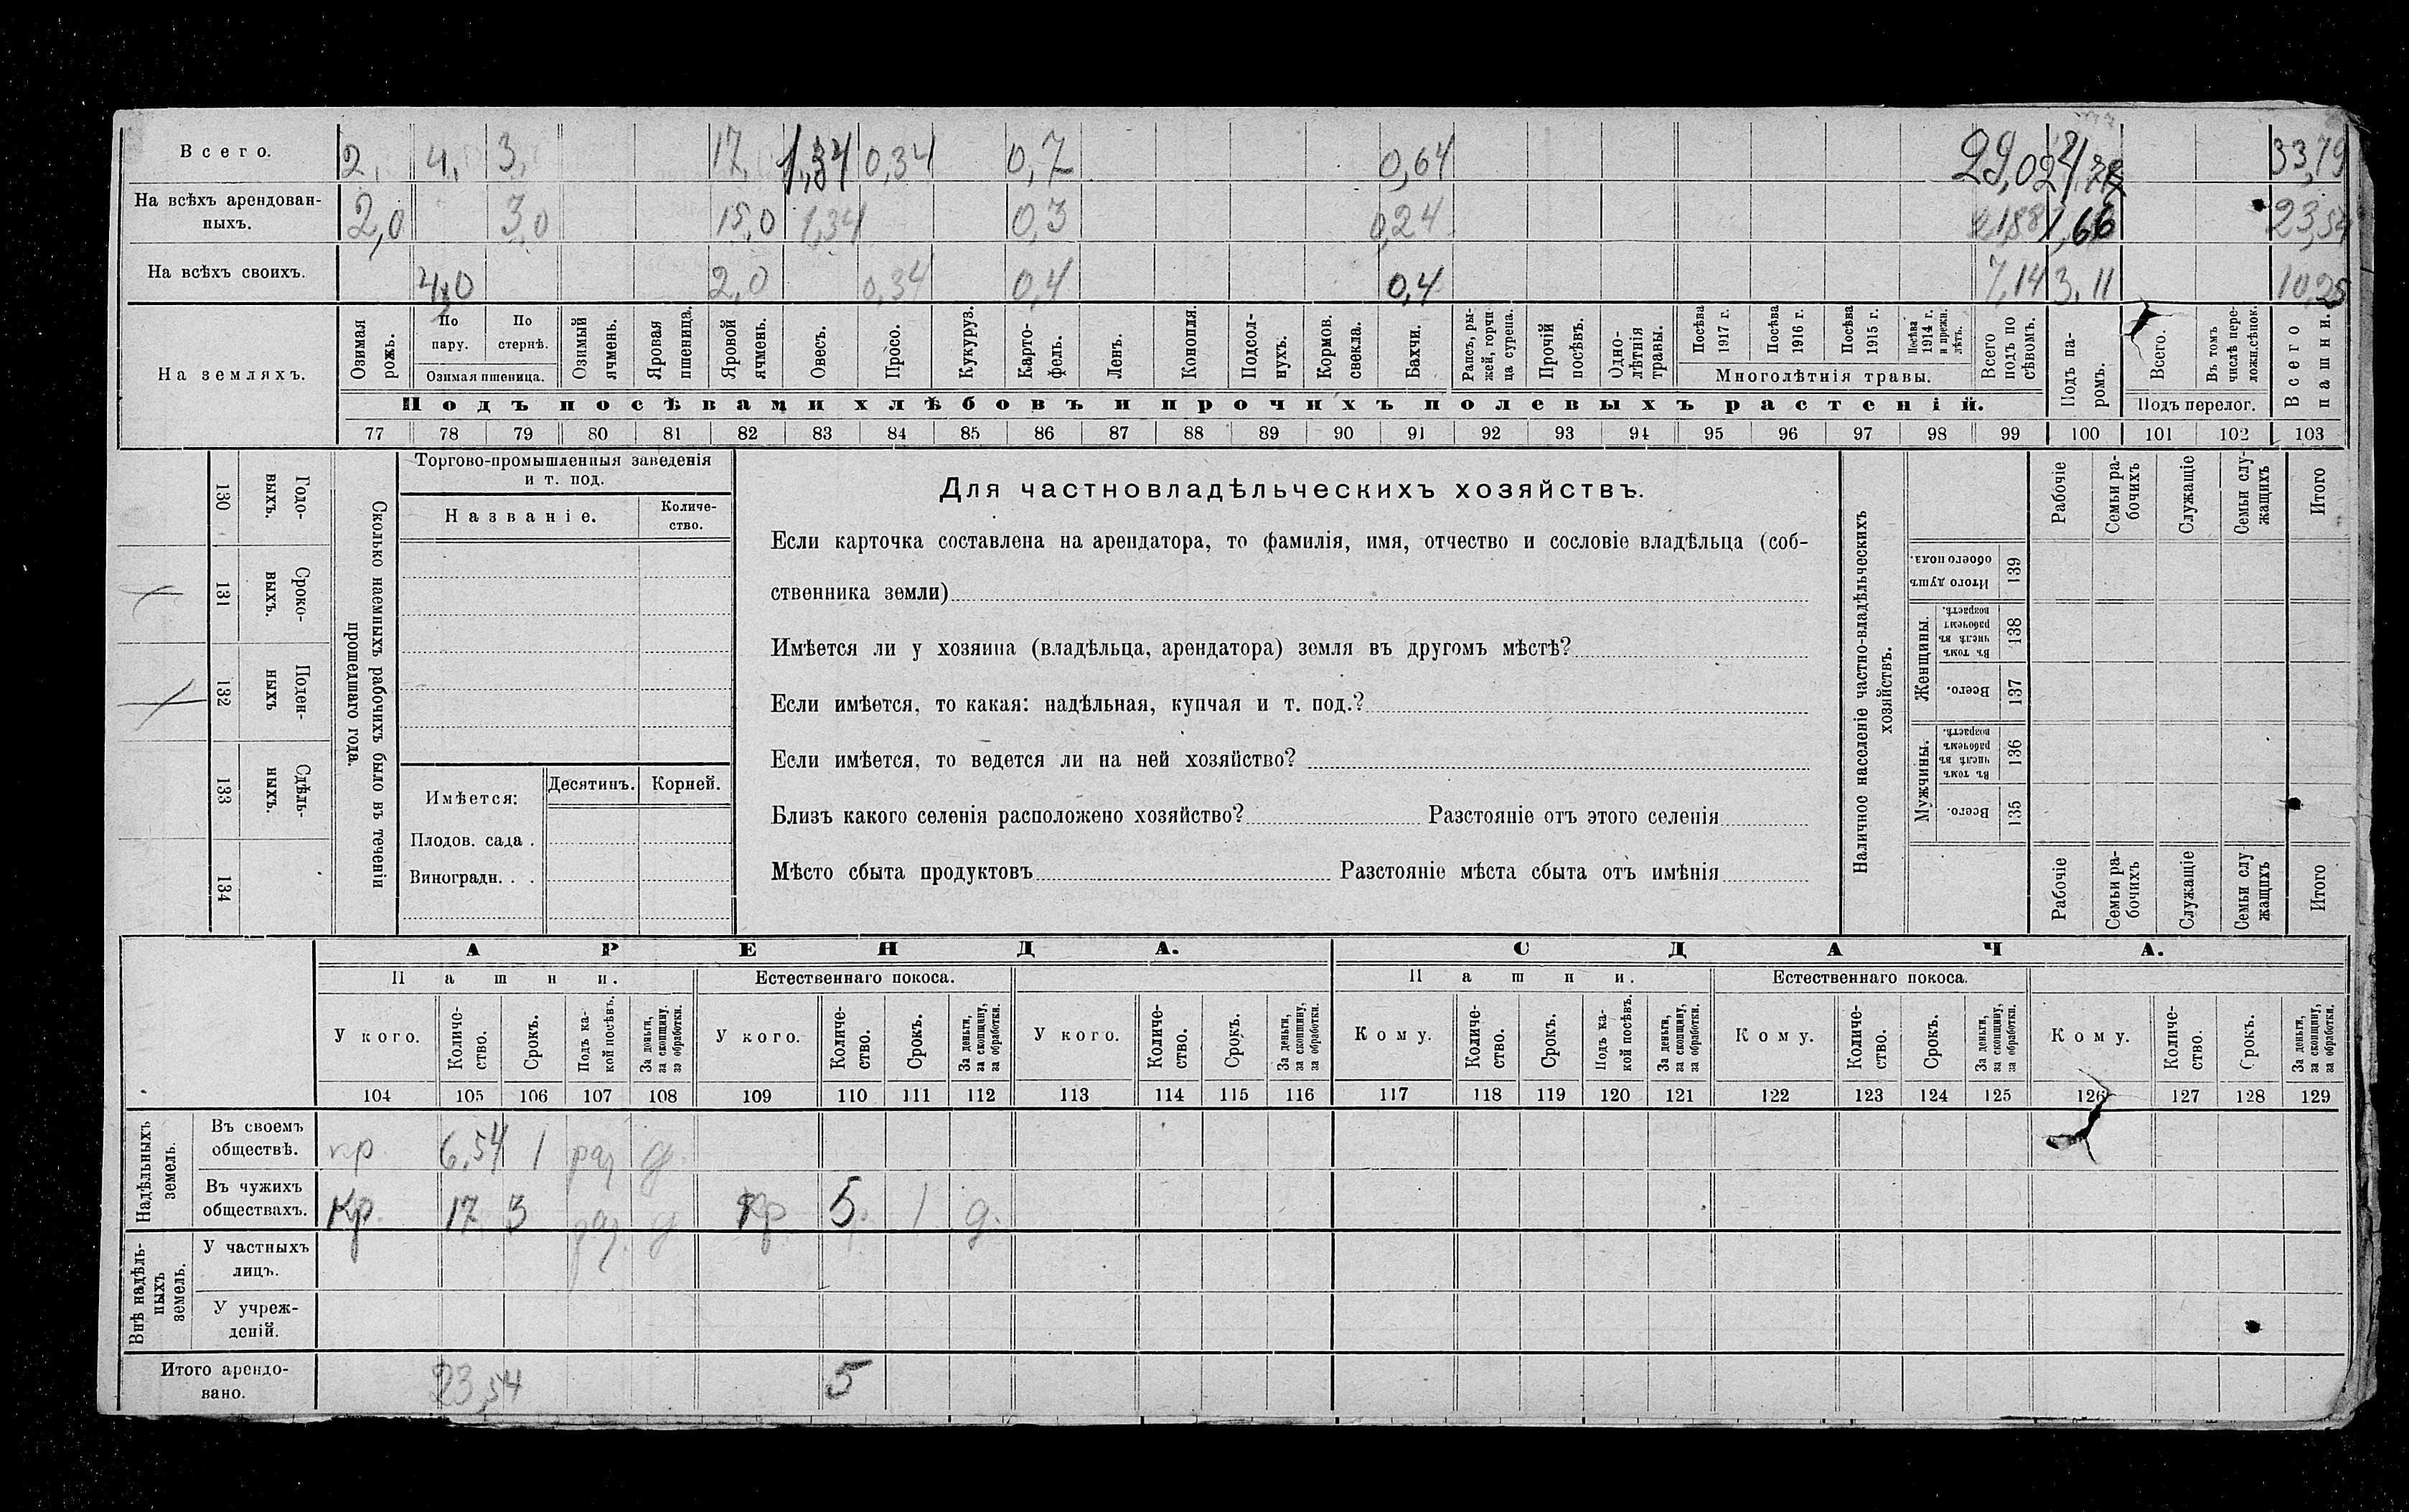 Всего. 2, 4, 3, 17, 1,34 0,34 0,7 0,64 29,02 33,79
На всѣхъ арендован-
ныхъ. 2,0 3,0 15,0 1,34 0,3 0,24 21,88 1,66 23,54
На всѣхъ своихъ. 4,0 2,0 0,34 0,4 0,4 7,14 3,11 10,25
На земляхъ.
Озимая рожь.
По пару.
По стернѣ.
Озимая пшеница.
Озимый ячмень.
Яровая пшеница.
Яровой ячмень.
Овесъ.
Просо.
Кукуруз.
Карто-
фель.
Ленъ.
Конопля.
Подсол-
нухъ.
Кормов.
свекла.
Бахчи.
Рапсъ, ры-
жей, горчи
ца сурепа.
Прочій
посѣвъ.
Одно-
лѣтнія
травы.
Посѣва
1917 г.
Посѣва
1916 г.
Посѣва
1915 г.
Посѣва
1914 г.
и прежн.
лѣтъ.
Многолѣтнія травы.
Всего
подъ по
сѣвомъ.
Подъ па-
ромъ.
Всего.
Въ томъ
числѣ пере-
ложн.сѣнок.
Подъ перелог.
Всего
пашни.
Подъ посѣвами хлѣбовъ и прочихъ полевыхъ растеній.
77 78 79 80 81 82 83 84 85 86 87 88 89 90 91 92 93 94 95 96 97 98 99 100 101 102 103
130 Годо-
выхъ.
131 Сроко-
выхъ.
132 Поден-
ныхъ
133 Сдѣль-
ныхъ.
134
Сколько наемныхъ рабочихъ было въ теченіи
прошедшаго года.
Торгово-промышленныя заведенія
и т. под.
Названіе.
Количе-
ство.
Имѣется:
Десятинъ. Корней.
Плодов. сада .
Виноградн. . .
Для частновладѣльческихъ хозяйствъ.
Если карточка составлена на арендатора, то фамилія, имя, отчество и сословіе владѣльца (соб-
ственника земли)
Имѣется ли у хозяина (владѣльца, арендатора) земля въ другомъ мѣстѣ?
Если имѣется, то какая: надѣльная, купчая и т. под.?
Если имѣется, то ведется ли на ней хозяйство?
Близъ какого селенія расположено хозяйство? Разстояніе отъ этого селенія
Мѣсто сбыта продуктовъ Разстояніе мѣста сбыта отъ имѣнія
Наличное населеніе частно-владѣльческихъ
хозяйствъ.
Рабочіе
Семьи ра-
бочихъ
Служащіе
Семьи слу-
жащихъ
Итого
Итого душъ
обоего пола.
139
Женщины.
Въ томъ
числѣ въ
рабочемъ
возрастѣ.
138
Всего.
137
Мужчины.
Въ томъ
числѣ въ
рабочемъ
возрастѣ.
136
Всего.
135
Рабочіе
Семьи ра-
бочихъ
Служащіе
Семьи слу
жащихъ
Итого
АРЕНДА. СДАЧА.
Пашни. Естественнаго покоса. Пашни. Естественнаго покоса.
У кого.
Количе-
ство.
Срокъ.
Подъ ка-
кой посѣвъ.
За деньги,
за скопщину,
за обработки.
У кого.
Количе-
ство.
Срокъ.
За деньги,
за скопщину,
за обработки.
У кого.
Количе-
ство.
Срокъ.
За деньги,
за скопщину,
за обработки.
Кому.
Количе-
ство.
Срокъ.
Подъ ка-
кой посѣвъ.
За деньги,
за скопщину,
за обработки.
Кому.
Количе-
ство.
Срокъ.
За деньги,
за скопщину,
за обработки.
Кому.
Количе-
ство.
Срокъ.
За деньги,
за скопщину,
за обработки.
104 105 106 107 108 109 110 111 112 113 114 115 116 117 118 119 120 121 122 123 124 125 126 127 128 129
Надѣльныхъ
земель.
Въ своемъ
обществѣ. кр. 6,54 1 раз д.
Въ чужихъ
обществахъ. Кр. 17 3 раз. д кр 5 1 д.
Внѣ надѣль-
ныхъ
земель.
У частныхъ
лицъ.
У учреж-
деній.
Итого арендо-
вано. 23,54 5